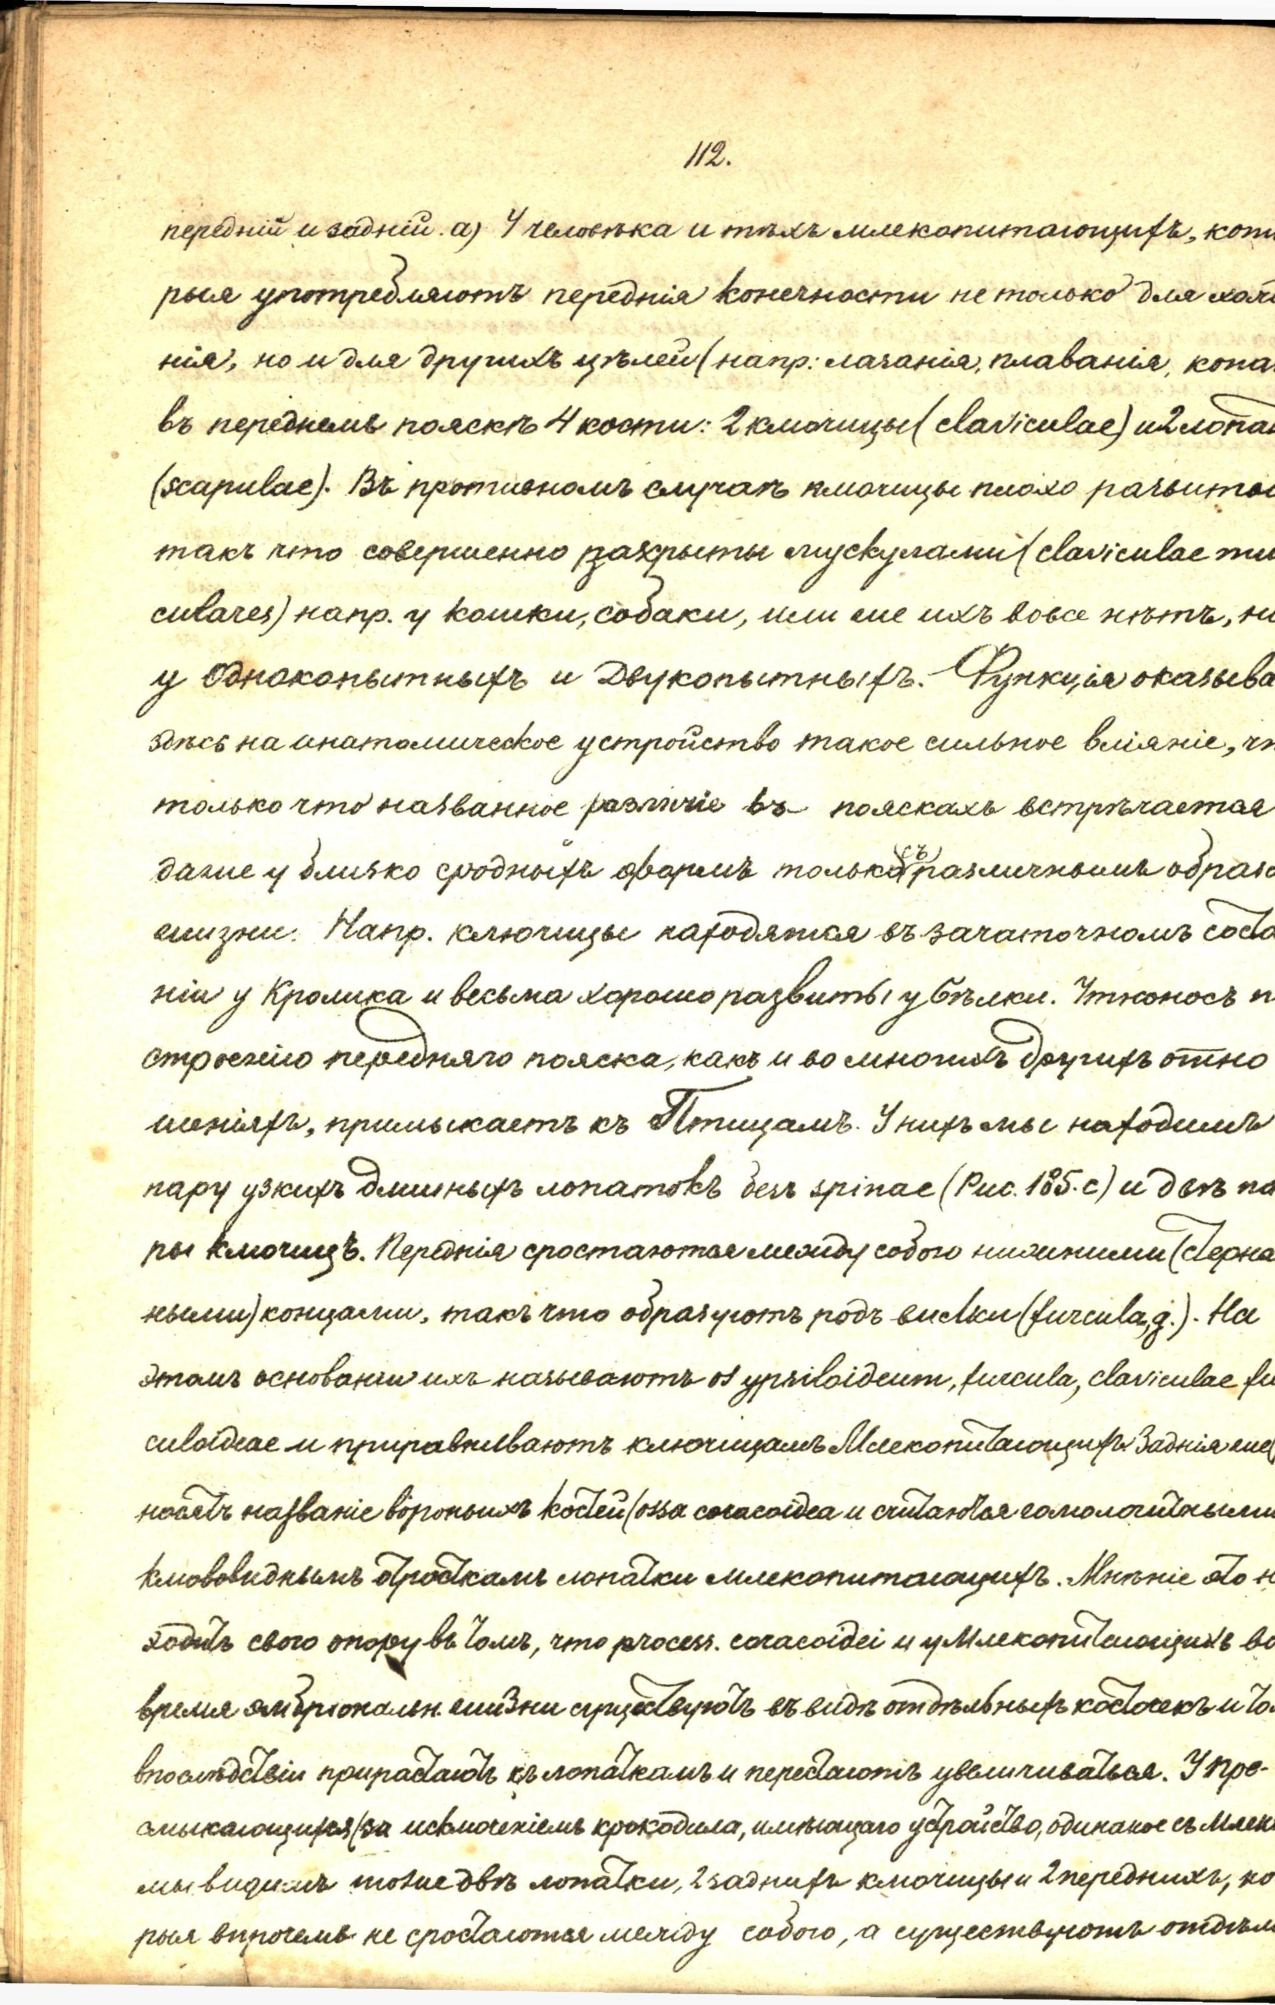 112.
передній и задній. а) У человѣка и тѣхъ млекопитающихъ, кото
рыя употребляютъ переднія конечности не только для хож
нія, но и для другихъ цѣлей (напр: лазанія, плаванія, копа
въ переднемъ пояскѣ 4 кости: 2 ключицы (claviculae) и 2 лопат
(scapulae). Въ противномъ случаѣ ключицы плохо развиты
такъ что совершенно закрыты мускулами (claviculae mu
culares) напр. у кошки, собаки, или же ихъ вовсе нѣтъ, н
у Однокопытныхъ и Двукопытныхъ. Функція оказыва
здѣсь на анатомическое устройство такое сильное вліяніе, чт
только что названное различіе въ пояскахъ встрѣчается
даже у близко сродныхъ формъ только съ различнымъ образо
жизни. Напр. ключицы находятся въ зачаточномъ состо
ніи у Кролика и весьма хорошо развиты у Бѣлки. Утконосъ п
строенію передняго пояска, какъ и во многихъ другихъ отно
шеніяхъ, примыкаетъ къ Птицамъ. У нихъ мы находимъ
пару узкихъ длинныхъ лопатокъ безъ spinae (Рис. 185. c) и двѣ па
ры ключицъ. Переднія сростаются между собою нижними (стерна
ными) концами, такъ что образуютъ родъ вилки (furcula, g.). На
этомъ основаніи ихъ называютъ os ypsiloideum, furcula, claviculae fu
culoideae и приравниваютъ ключицамъ Млекопитающихъ. Заднія же
носятъ названіе вороньихъ костей (ossa coracoidea и считаются гомологичными
клювовиднымъ отросткамъ лопатки млекопитающихъ. Мнѣніе это н
ходитъ свою опору въ томъ, что process. coracoidei и у Млекопитающихъ во
время эмбріональн. жизни существуютъ въ видѣ отдѣльныхъ косточекъ и то
впослѣдствіи прирастаютъ къ лопаткамъ и перестаютъ увеличиваться. У Пре-
смыкающихся (за исключеніемъ крокодила, имѣющаго устройство, одинакое съ Млек
мы видимъ тоже двѣ лопатки, 2 заднихъ ключицы и 2 переднихъ, ко
рыя впрочемъ не сростаются между собою, а существуютъ отдѣль